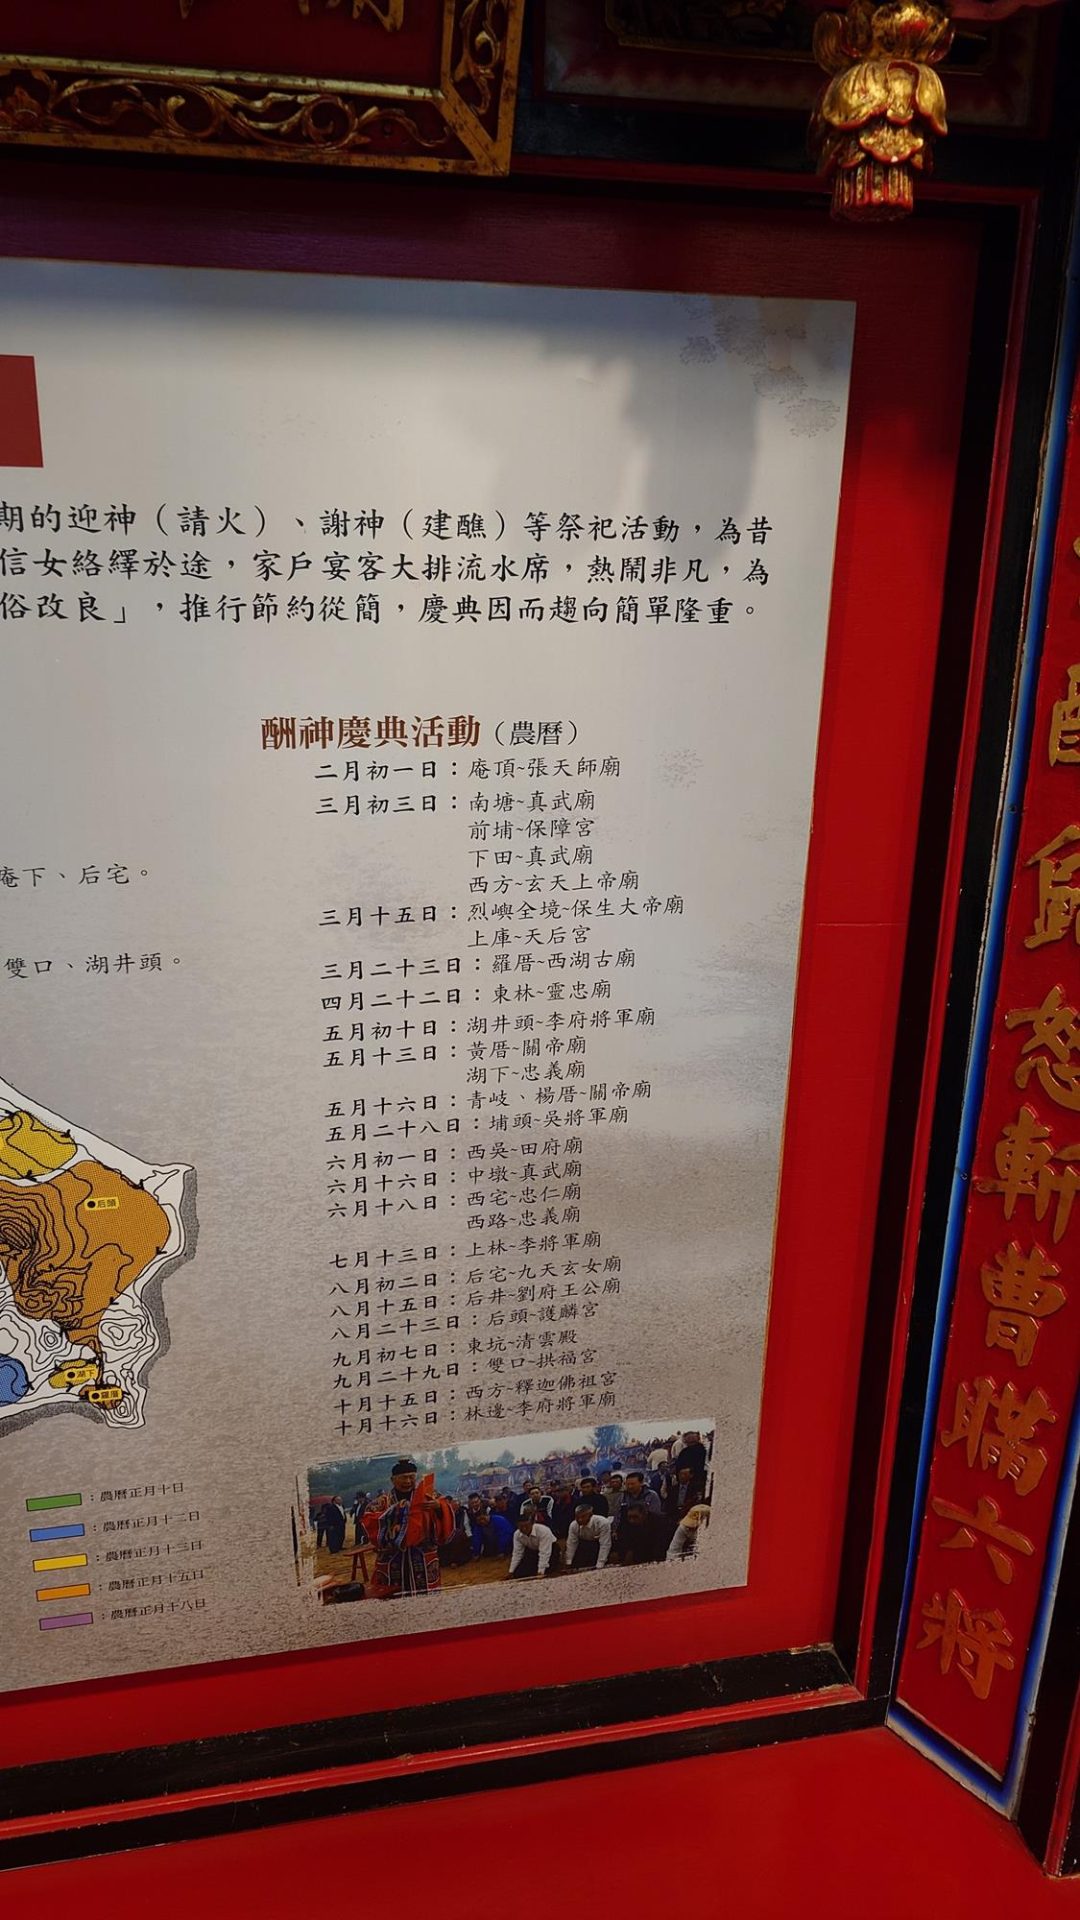 期的迎神（請火）、謝神（建醮）等祭祀活動，為昔
信女絡繹於途，家戶宴客大排流水席，熱鬧非凡，為
俗改良」，推行節約從簡，慶典因而趨向簡單隆重。
酬神慶典活動（農曆）
二月初一日：庵頂~張天師廟
三月初三日：南塘~真武廟
前埔~保障宮
下田~真武廟
西方~玄天上帝廟
三月十五日：烈嶼全境~保生大帝廟
上庫~天后宮
三月二十三日：羅厝~西湖古廟
四月二十二日：東林~靈忠廟
五月初十日：湖井頭~李府將軍廟
五月十三日：黃厝~關帝廟
湖下~忠義廟
五月十六日：青岐、楊厝~關帝廟
五月二十八日：埔頭~吳將軍廟
六月初一日：西吳~田府廟
六月十六日：中墩~真武廟
六月十八日：西宅~忠仁廟
西路~忠義廟
七月十三日：上林~李將軍廟
八月初二日：后宅~九天玄女廟
八月十五日：后井~劉府王公廟
八月二十三日：后頭~護麟宮
九月初七日：東坑~清雲殿
九月二十九日：雙口~拱福宮
十月十五日：西方~釋迦佛祖宮
十月十六日：林邊~李府將軍廟
庵下、后宅。
雙口、湖井頭。
后頭
湖下
羅厝
：農曆正月十日
：農曆正月十二日
：農曆正月十三日
：農曆正月十五日
：農曆正月十八日
怒斬曹瞞六將